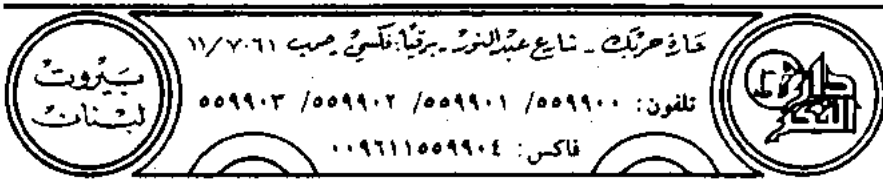 حارة حريك - شارع عبد النور - برقيا: فكسي - صرب ١١/٧٠٦١
تلفون: ٥٥٩٩٠٠ / ٥٥٩٩٠١ / ٥٥٩٩٠٢ / ٥٥٩٩٠٣
فاكس: ٠٠٩٦١١٥٥٩٩٠٤
بيروت
لبنان
دار
الفكر